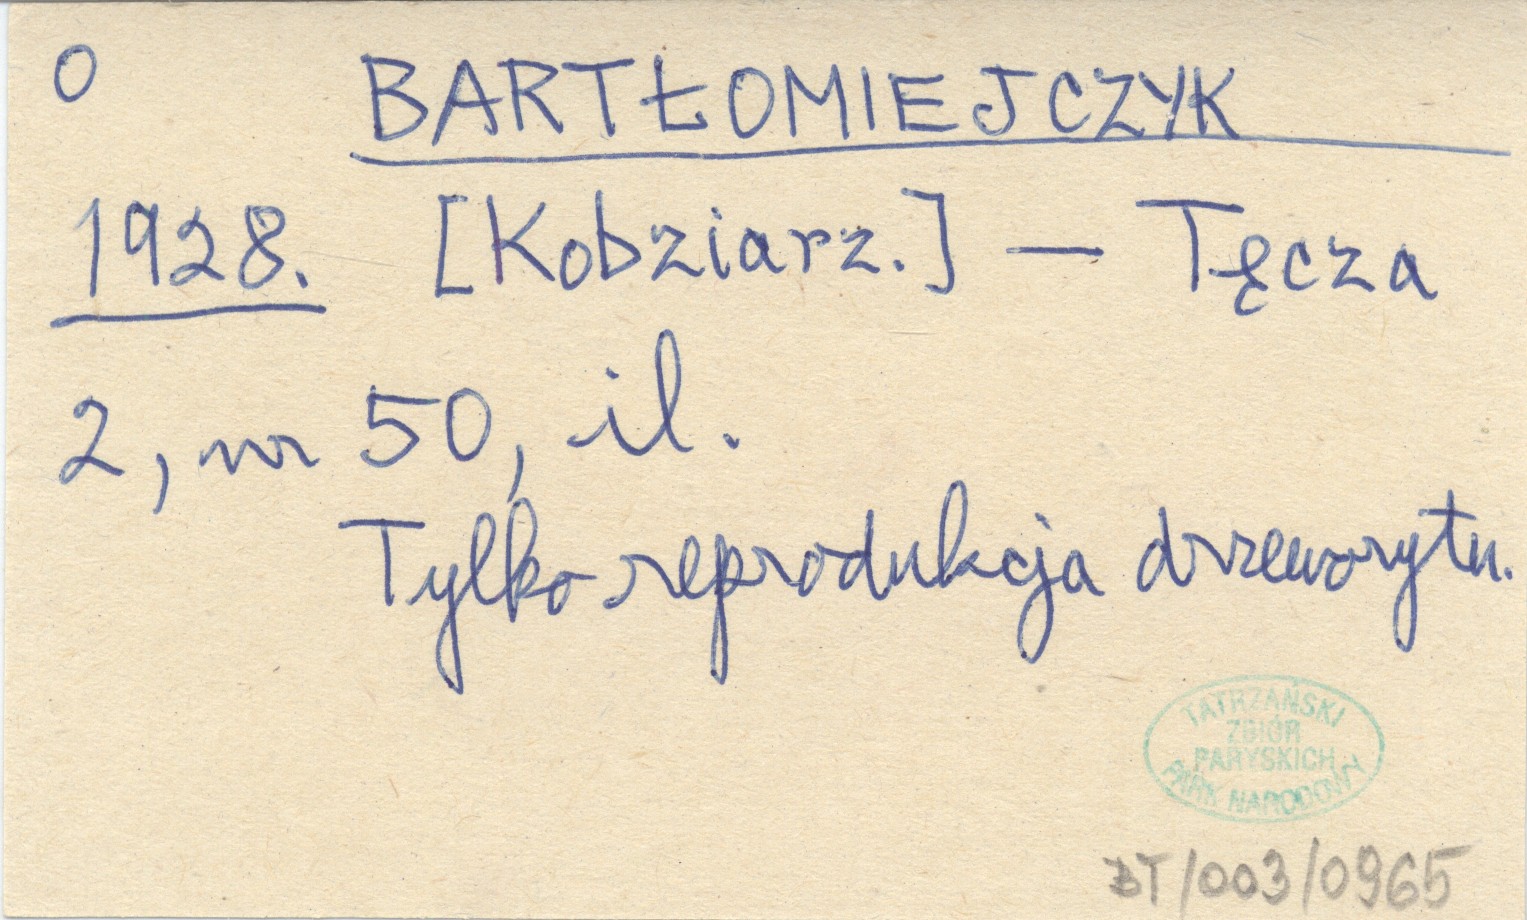 O BARTŁOMIEJCZYK
1928. [Kobziarz.] — Tęcza
2, nr 50, il.
Tylko reprodukcja drzeworytu.
TATRZAŃSKI
ZBIÓR
PARYSKICH
PARK NARODOWY
BT/003/0965